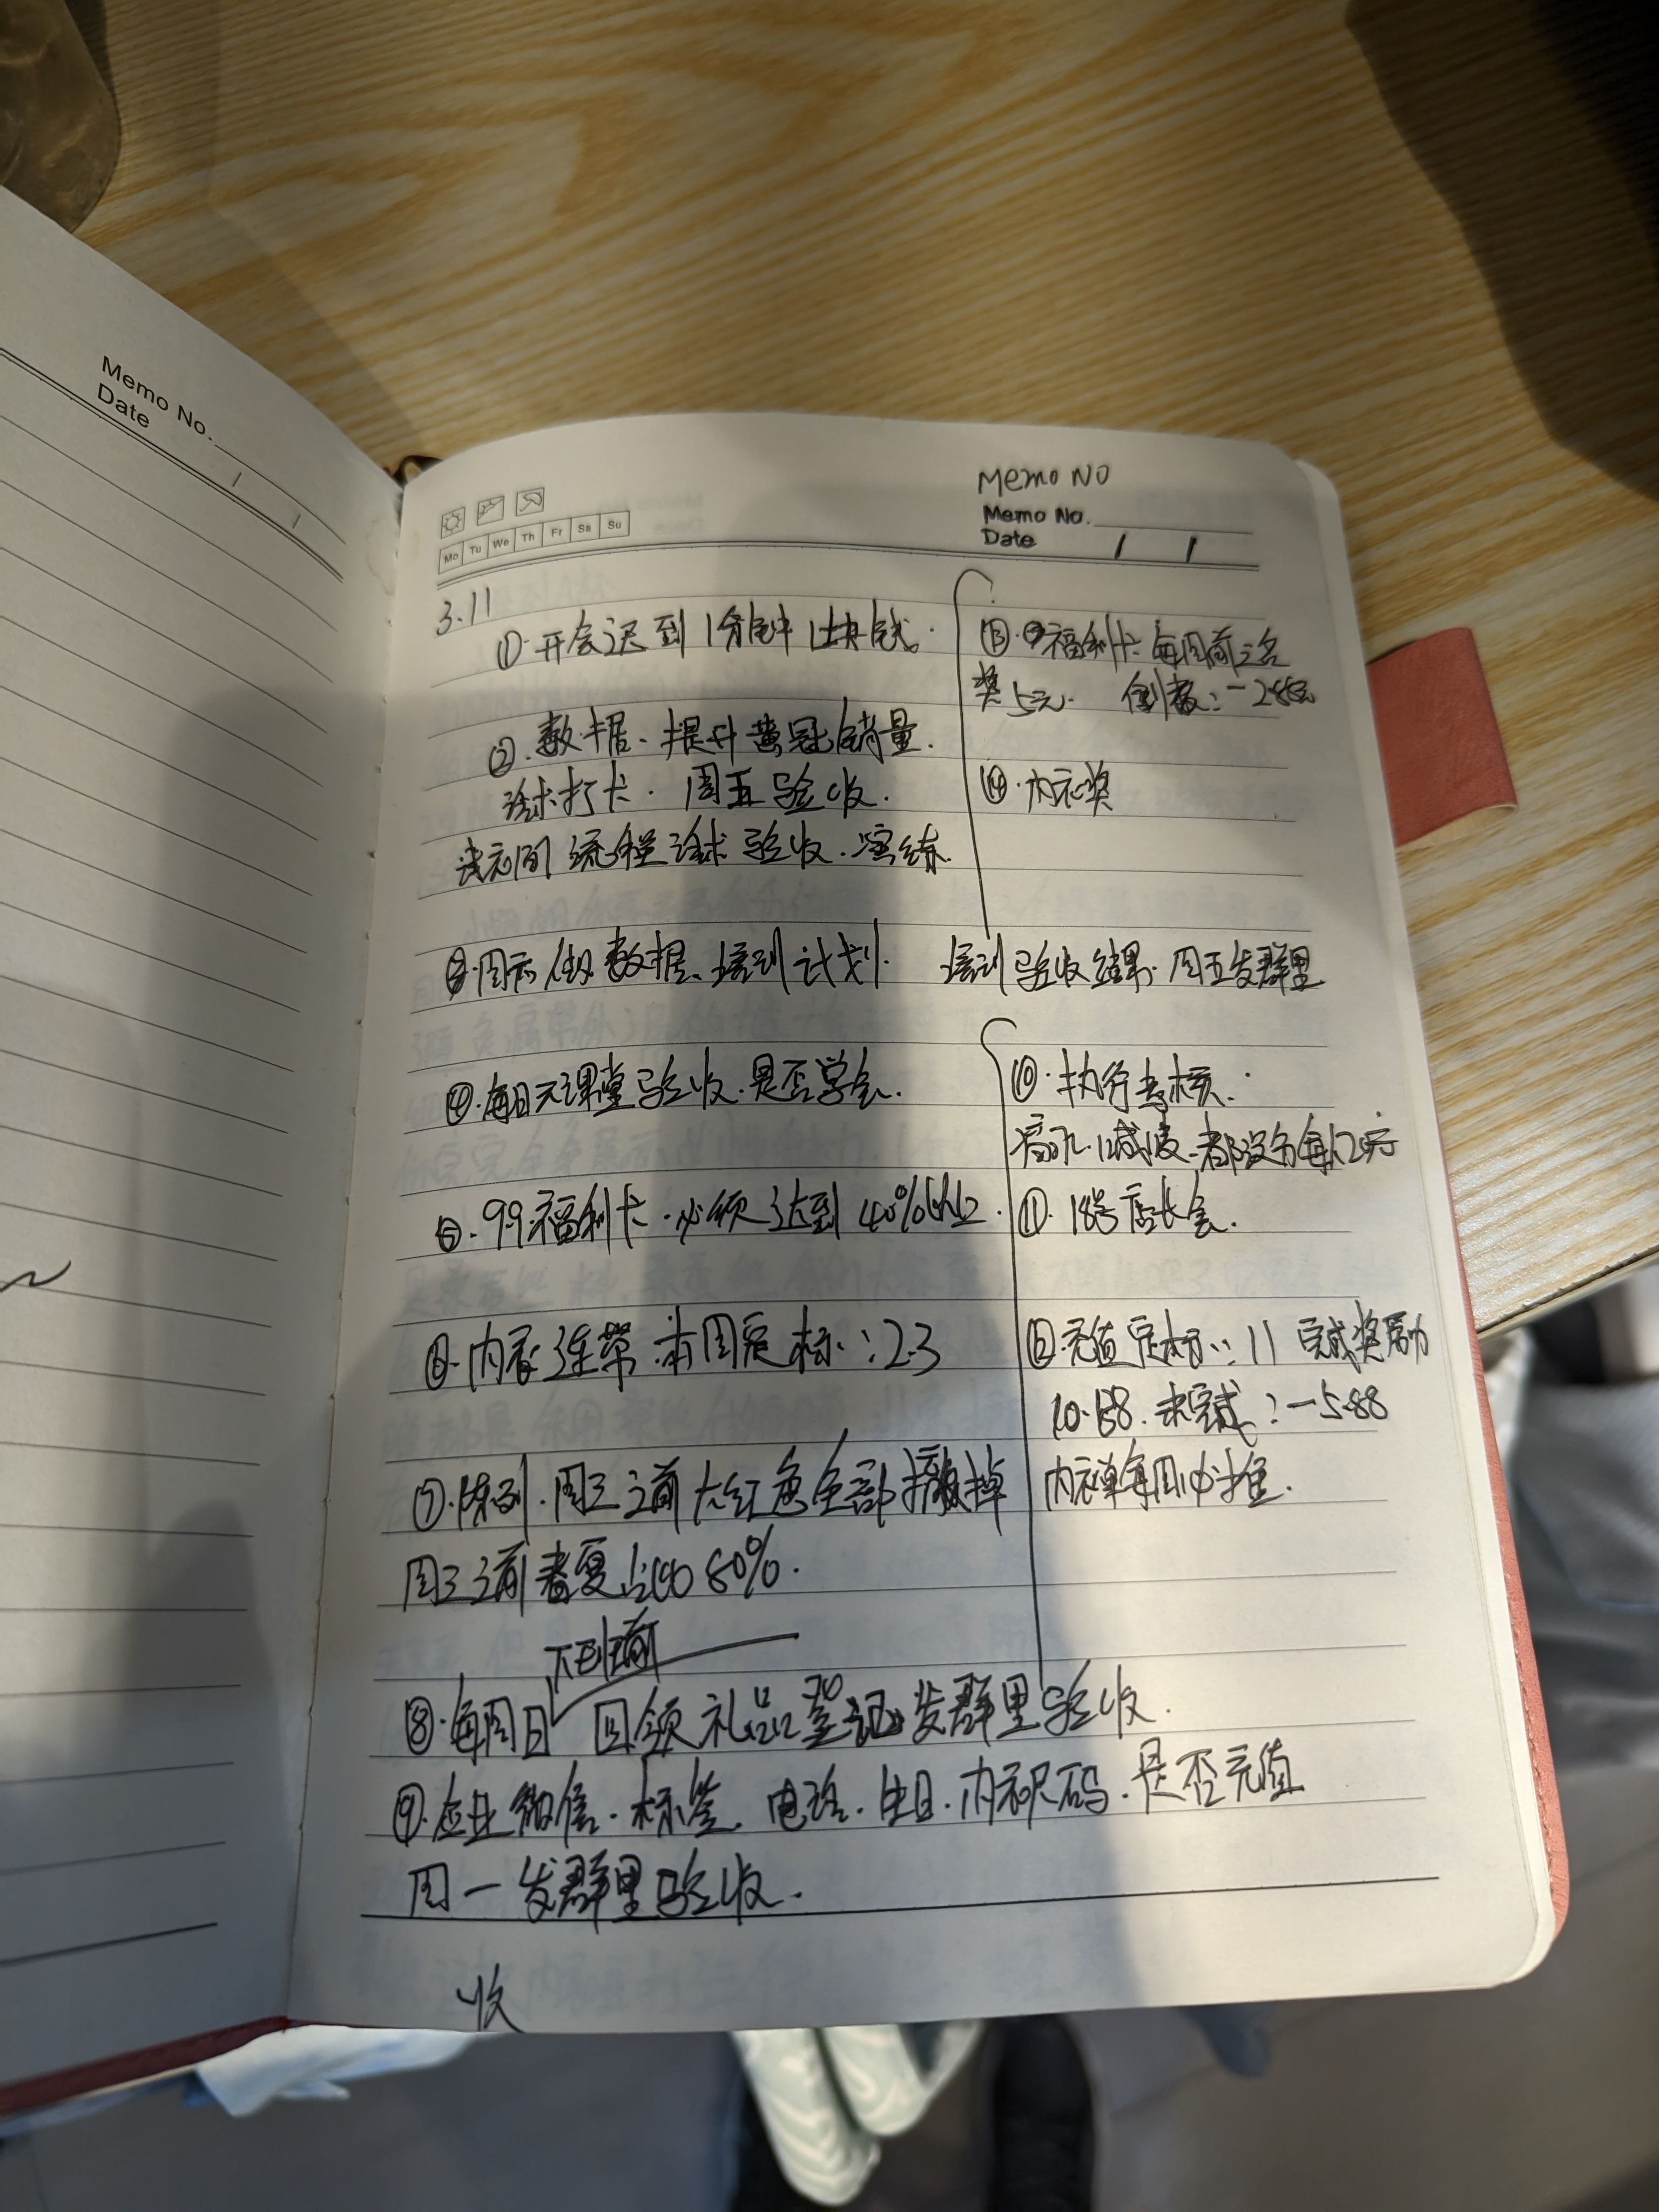 Memo No.
Date / /
Memo NO
Memo No.
Date / /
Mo Tu We Th Fr Sa Su
3.11
①.开会迟到1分钟1块钱.
②.数据、提升黄冠销量.
话术打卡. 周五验收.
试衣间流程话术验收.演练.
③.周示做数据、培训计划. 培训验收结果.周五发群里
④.每日大课堂验收.是否学会.
⑤.99福利卡.必须达到40%
⑥.内衣连带.本周定标:2.3
⑦.陈列.周三之前大红色全部撤掉
周三之前春夏占比80%.
下班前
⑧.每周日 回领礼品登记发群里验收.
⑨.企业微信.标签.电话.生日.内衣尺码.是否充值
周一发群里验收.
收
⑬.福利卡每周前三名
奖5元. 倒数:-2.88元
⑭.内衣奖
⑩.执行考核.
⑪.18号店长会.
⑫.充值定标:11 完成奖励
10.88.未完成:-5.88
内衣单每周必推.